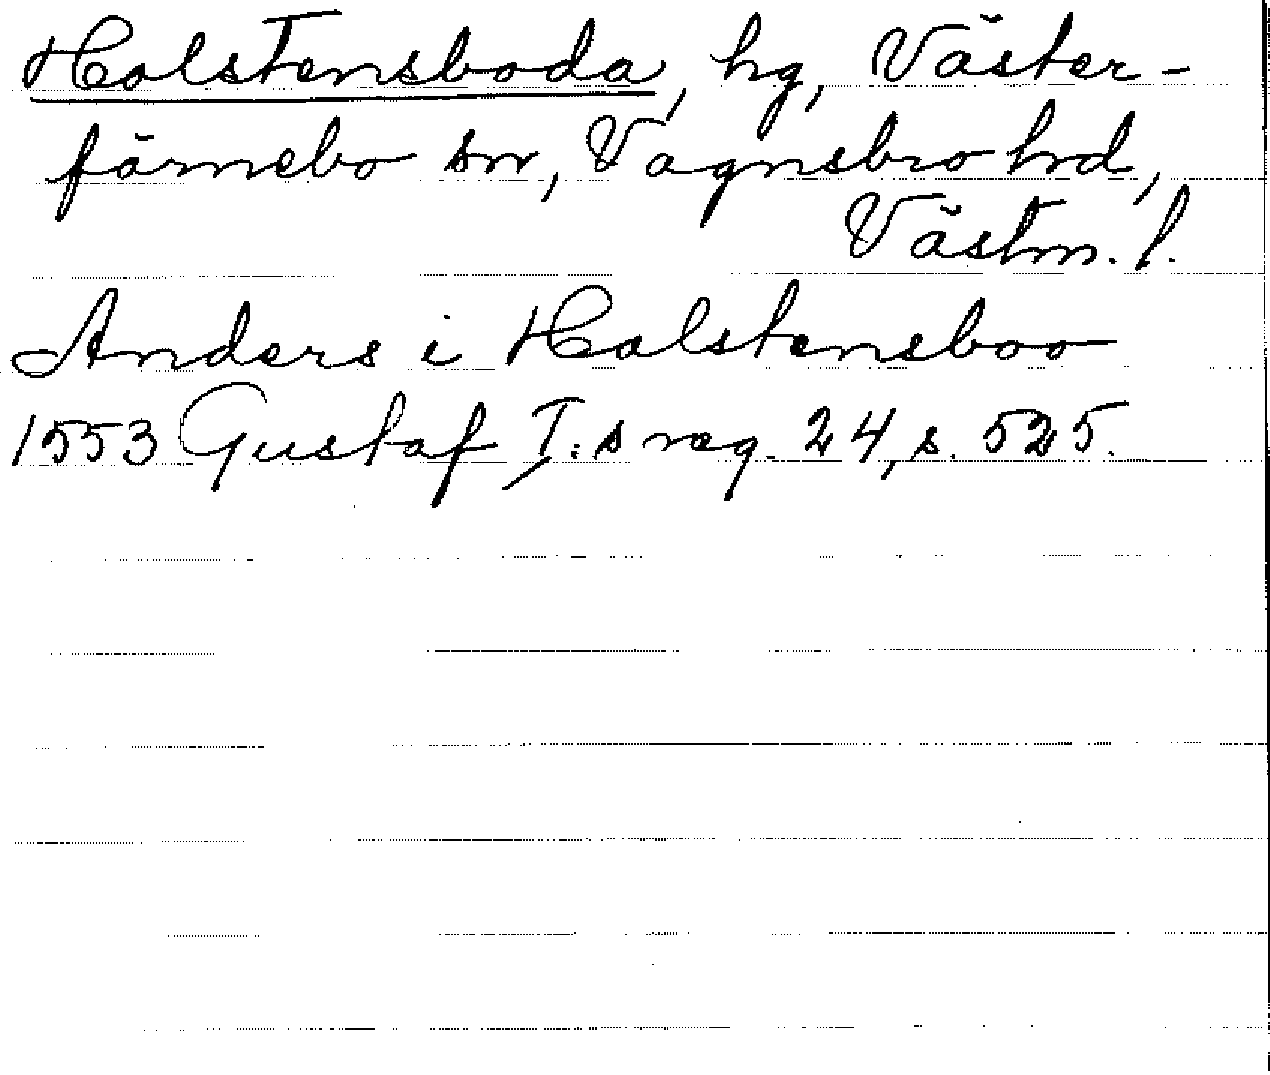 Holstensboda, hg, Väster-
färnebo sn, Vagnsbro hrd,
Västm. l.
Anders i Holstensboo
1553 Gustaf I:s reg. 24, s. 525.